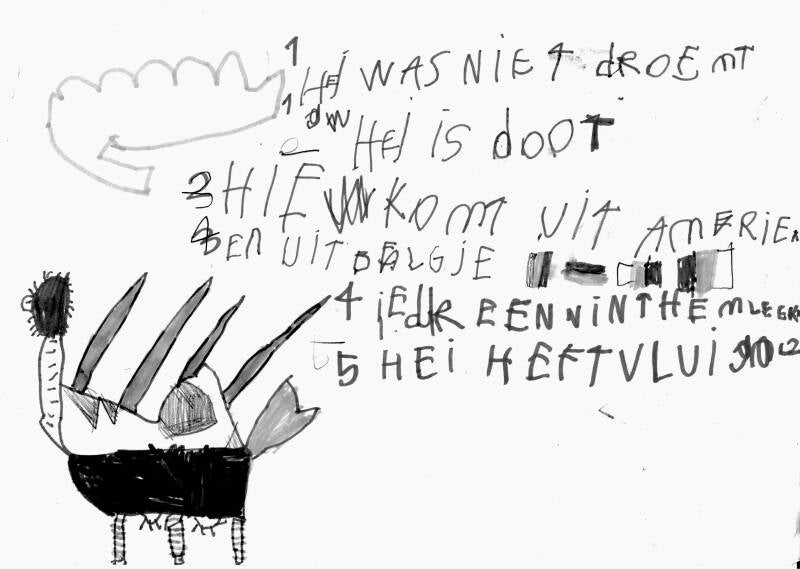 1 HEJ WAS NIET dROEMT
1 HEJ IS dOOT
3 HIE KOM UIT AMERIE
4 EN UIT BELGJE
4 iEdREEN VINT HEM LEEK
5 HEI HEFT VLUI